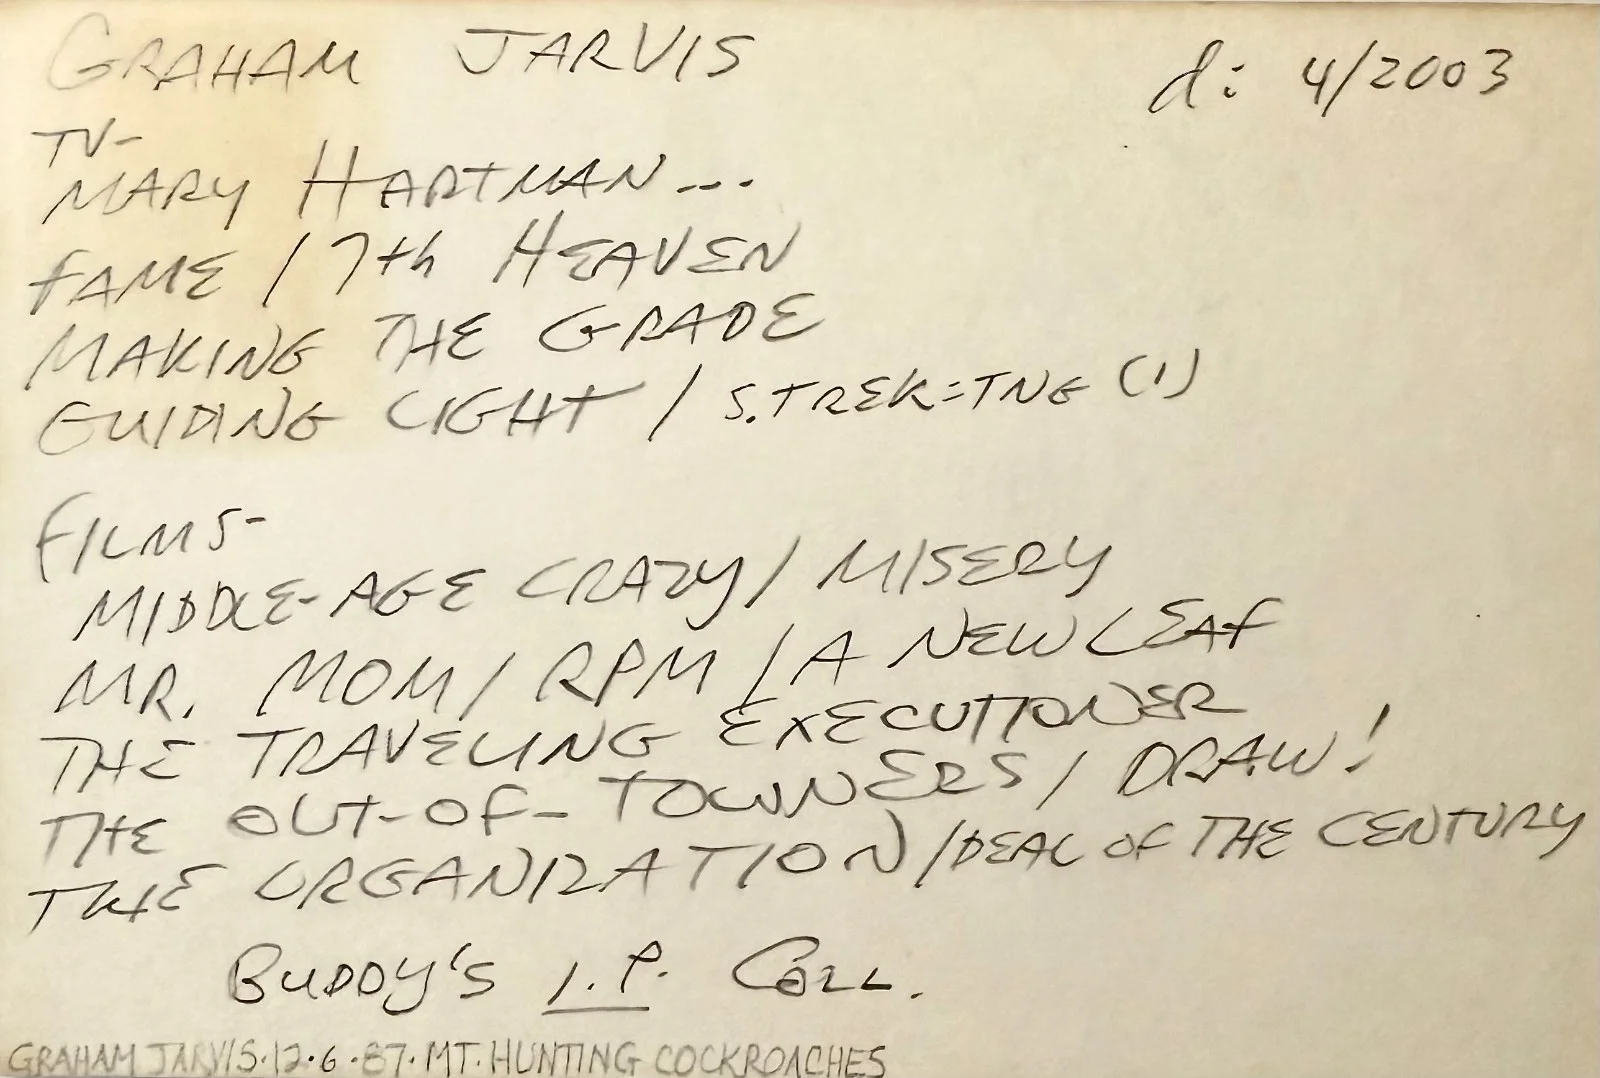 GRAHAM JARVIS d: 4/2003
TV-
MARY HARTMAN...
FAME / 7th HEAVEN
MAKING THE GRADE
GUIDING LIGHT / S.TREK=TNG (1)
FILMS-
MIDDLE-AGE CRAZY / MISERY
MR. MOM / RPM / A NEW LEAF
THE TRAVELING EXECUTIONER
THE OUT-OF-TOWNERS / DRAW!
THE ORGANIZATION / DEAL OF THE CENTURY
BUDDY'S I.P. COLL.
GRAHAM JARVIS·12·6·87·MT. HUNTING COCKROACHES